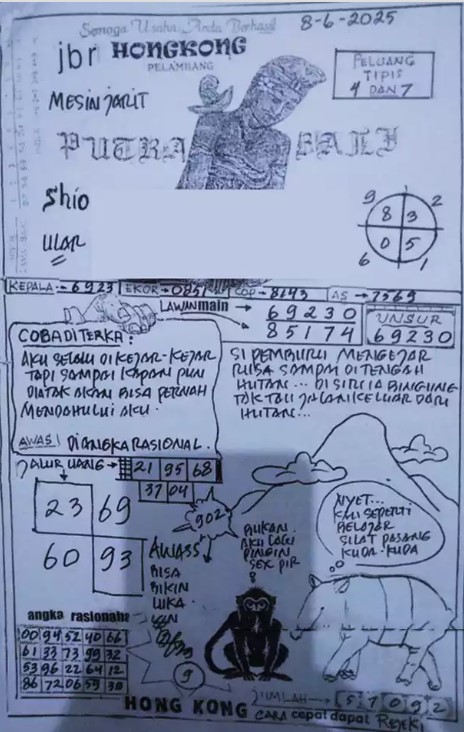 Semoga Usaha Anda Berhasil
8-6-2025
jbr HONGKONG
PELAMBANG
PELUANG
TIPIS
4 DAN 7
MESIN JARIT
PUTRA BALI
Shio
ULAR
9 2
8 3
0 5
6 1
KEPALA:-6923 EKOR-0857 COP-8143 AS-7569
LAWAN main
69230
85174
UNSUR
69230
COBA DI TERKA:
AKU SELALU DI KEJAR-KEJAR
TAPI SAMPAI KAPAN PUN
DIA TAK AKAN BISA PERNAH
MENDAHULUI AKU.
AWAS! DI ANGKA RASIONAL.
SI PEMBURU MENGEJAR
RUSA SAMPAI DI TENGAH
HUTAN... DI SIRI IA BINGUNG
TAK TAU JALAN KELUAR DARI
HUTAN...
JALUR UANG → 21 95 68
37 04
23 69
60 93
902
AWASS
BISA
BIKIN
LUKA
BUKAN
AKU LAGI
PINGIN
SEX PIR
NYET...
KAU SEPERTI
BELAJAR
SILAT PASANG
KUDA-KUDA
angka rasionaha
00 94 52 40 66
61 33 73 99 32
53 96 22 64 12
86 72 06 59 38
9
JUMLAH → 57092
HONG KONG CARA cepat dapat Rejeki